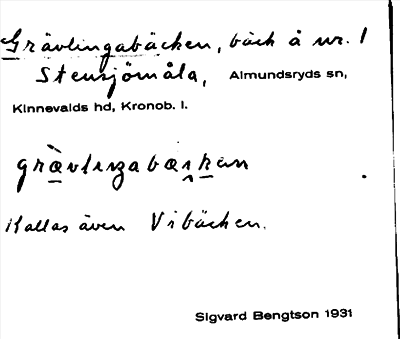 Grävlingabäcken, bäck å nr. 1
Stensjömåla, Almundsryds sn,
Kinnevalds hd, Kronob. l.
Kallas även Vibäcken.
Sigvard Bengtson 1931